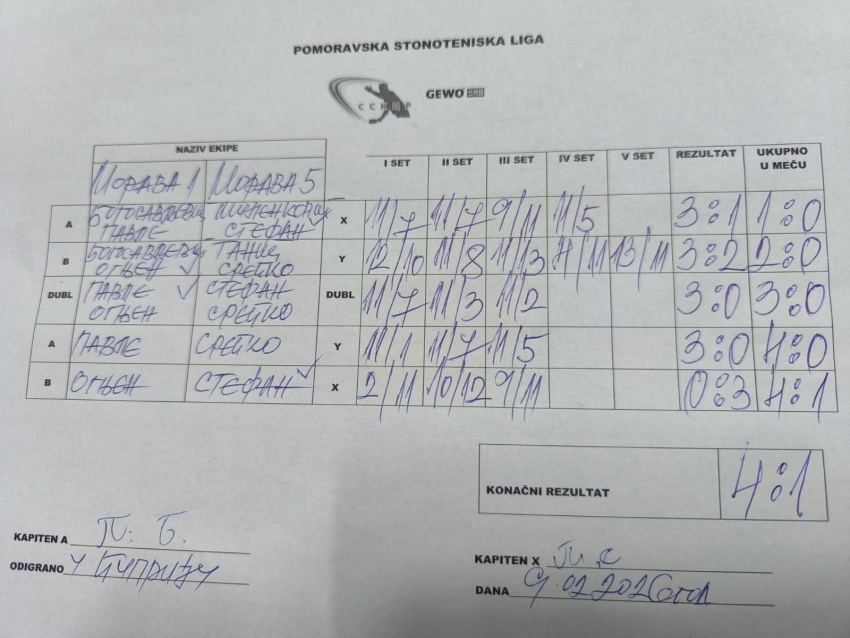 POMORAVSKA STONOTENISKA LIGA
CCKMP GEWO SRB
NAZIV EKIPE
I SET II SET III SET IV SET V SET REZULTAT UKUPNO U MEČU
МОРАВА 1 МОРАВА 5
A БОГОСАВЉЕВИЋ ПАВЛЕ СТЕФАН X 11/7 11/7 9/11 11/5 3:1 1:0
B БОГОСАВЉЕВИЋ ОГЊЕН ТАНИЋ СРЕЋКО Y 12/10 11/8 11/3 13/11 3:2 2:0
DUBL ПАВЛЕ ОГЊЕН СТЕФАН СРЕЋКО DUBL 11/7 11/3 11/2 3:0 3:0
A ПАВЛЕ СРЕЋКО Y 11/1 11/7 11/5 3:0 4:0
B ОГЊЕН СТЕФАН X 2/11 10/12 9/11 0:3 4:1
KONAČNI REZULTAT 4:1
KAPITEN A П. Б.
ODIGRANO У ЋУПРИЈИ
KAPITEN X
DANA 9.02.2026